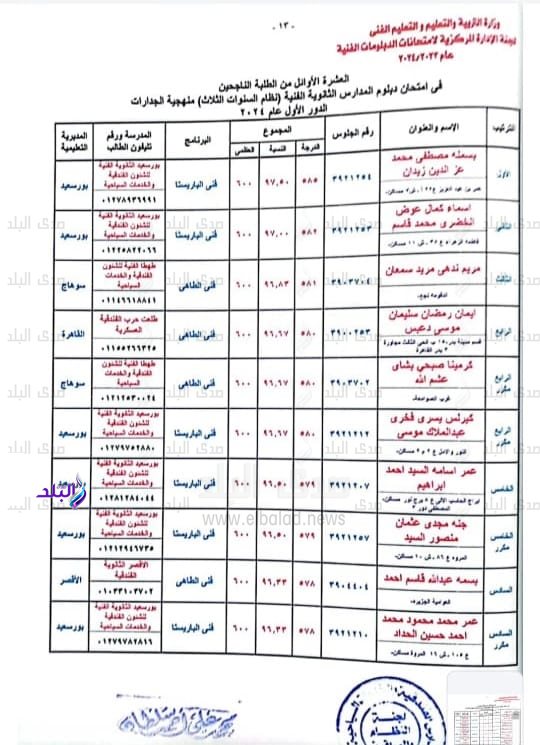 وزارة التربية والتعليم و التعليم الفنى
لجنة الإدارة المركزية لامتحانات الدبلومات الفنية
عام ٢٠٢٤/٢٠٢٣
- ١٣ -
العشرة الأوائل من الطلبة الناجحين
فى امتحان دبلوم المدارس الثانوية الفنية (نظام السنوات الثلاث) منهجية الجدارات
الدور الأول عام ٢٠٢٤
الترتيب الإسم والعنوان رقم الجلوس المجموع البرنامج المدرسة ورقم تليفون الطالب المديرية التعليمية
الدرجة النسبة العظمى
الأول بسمله مصطفى محمد عز الدين زيدان ٣٩٢١٢٥٤ ٥٨٥ ٩٧,٥٠ ٦٠٠ فنى الباريستا بورسعيد الثانوية الفنية للشئون الفندقية والخدمات السياحية بورسعيد
٠١٢٧٨٩٣٦٩٩١
الثانى اسماء كمال عوض الخضرى محمد قاسم ٣٩٢١٢٥٣ ٥٨٢ ٩٧,٠٠ ٦٠٠ فنى الباريستا بورسعيد الثانوية الفنية للشئون الفندقية والخدمات السياحية بورسعيد
فاطمه الزهراء ع ٣٥ ش ١١ مساكن. ٠١٢٢٥٨٢٢٠٦٦
الثالث مريم ندهى مريد سمعان ٣٩٠٣٧٠٤ ٥٨١ ٩٦,٨٣ ٦٠٠ فنى الطاهى طهطا الفنية للشئون الفندقية والخدمات السياحية سوهاج
٠١١٤٦٦١٨٨٤١
الرابع ايمان رمضان سليمان موسى دعبس ٣٩٠٠٢٥٣ ٥٨٠ ٩٦,٦٧ ٦٠٠ فنى الطاهى طلعت حرب الفندقية العسكرية القاهرة
٠١١٥٥٢٦٦٣٢٥
الرابع مكرر كرمينا صبحي بشاى عشم الله ٣٩٠٣٧٠٢ ٥٨٠ ٩٦,٦٧ ٦٠٠ فنى الطاهى طهطا الفنية للشئون الفندقية والخدمات السياحية سوهاج
غرب الصوامعة. ٠١٢١٢٥٣٠٠٢٤
الرابع مكرر كيرلس يسرى فخرى عبدالملاك موسى ٣٩٢١٢١٢ ٥٨٠ ٩٦,٦٧ ٦٠٠ فنى الباريستا بورسعيد الثانوية الفنية للشئون الفندقية والخدمات السياحية بورسعيد
٠١٢٧٩٧٥٢٨٨٠
الخامس عمر اسامه السيد احمد ابراهيم ٣٩٢١٢٠٧ ٥٧٩ ٩٦,٥٠ ٦٠٠ فنى الباريستا بورسعيد الثانوية الفنية للشئون الفندقية والخدمات السياحية بورسعيد
٠١٢٨١٢٨٤٠٤٤
الخامس مكرر جنه مجدى عثمان منصور السيد ٣٩٢١٢٥٧ ٥٧٩ ٩٦,٥٠ ٦٠٠ فنى الباريستا بورسعيد الثانوية الفنية للشئون الفندقية والخدمات السياحية بورسعيد
المروه ع ٨٦ ش ١٠ مساكن. ٠١٢١٢٩٤٦٧٣٥
السادس بسمه عبدالله قاسم احمد ٣٩٠٤٤٠٤ ٥٧٨ ٩٦,٣٣ ٦٠٠ فنى الطاهى الأقصر الثانوية الفندقية الأقصر
العوامية الجزيره. ٠١٠٣٣١٠٣٧٠٢
السادس مكرر عمر محمد محمود محمد احمد حسين الحداد ٣٩٢١٢١٠ ٥٧٨ ٩٦,٣٣ ٦٠٠ فنى الباريستا بورسعيد الثانوية الفنية للشئون الفندقية والخدمات السياحية بورسعيد
ع ١٠٥ ش ١٦ المروة مساكن. ٠١٢٧٩٧٨٢٨١٦
صدى البلد
www.elbalad.news
لجنة
النظام